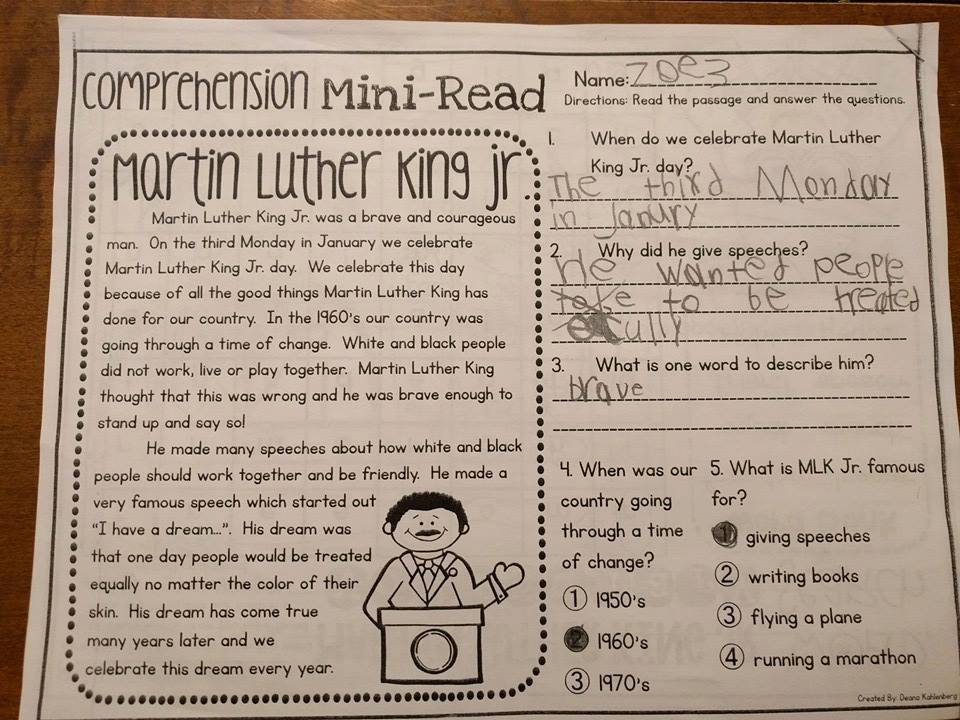 Comprehension Mini-Read
Name: Zoe3
Directions: Read the passage and answer the questions.
Martin Luther King Jr.
Martin Luther King Jr. was a brave and courageous
man. On the third Monday in January we celebrate
Martin Luther King Jr. day. We celebrate this day
because of all the good things Martin Luther King has
done for our country. In the 1960's our country was
going through a time of change. White and black people
did not work, live or play together. Martin Luther King
thought that this was wrong and he was brave enough to
stand up and say so!
He made many speeches about how white and black
people should work together and be friendly. He made a
very famous speech which started out
"I have a dream...". His dream was
that one day people would be treated
equally no matter the color of their
skin. His dream has come true
many years later and we
celebrate this dream every year.
1. When do we celebrate Martin Luther
King Jr. day?
The third Monday
in Janury
2. Why did he give speeches?
He wanted people
to be treated
ecully
3. What is one word to describe him?
brave
4. When was our
country going
through a time
of change?
1 1950's
2 1960's
3 1970's
5. What is MLK Jr. famous
for?
1 giving speeches
2 writing books
3 flying a plane
4 running a marathon
Created By: Deana Kahlenberg